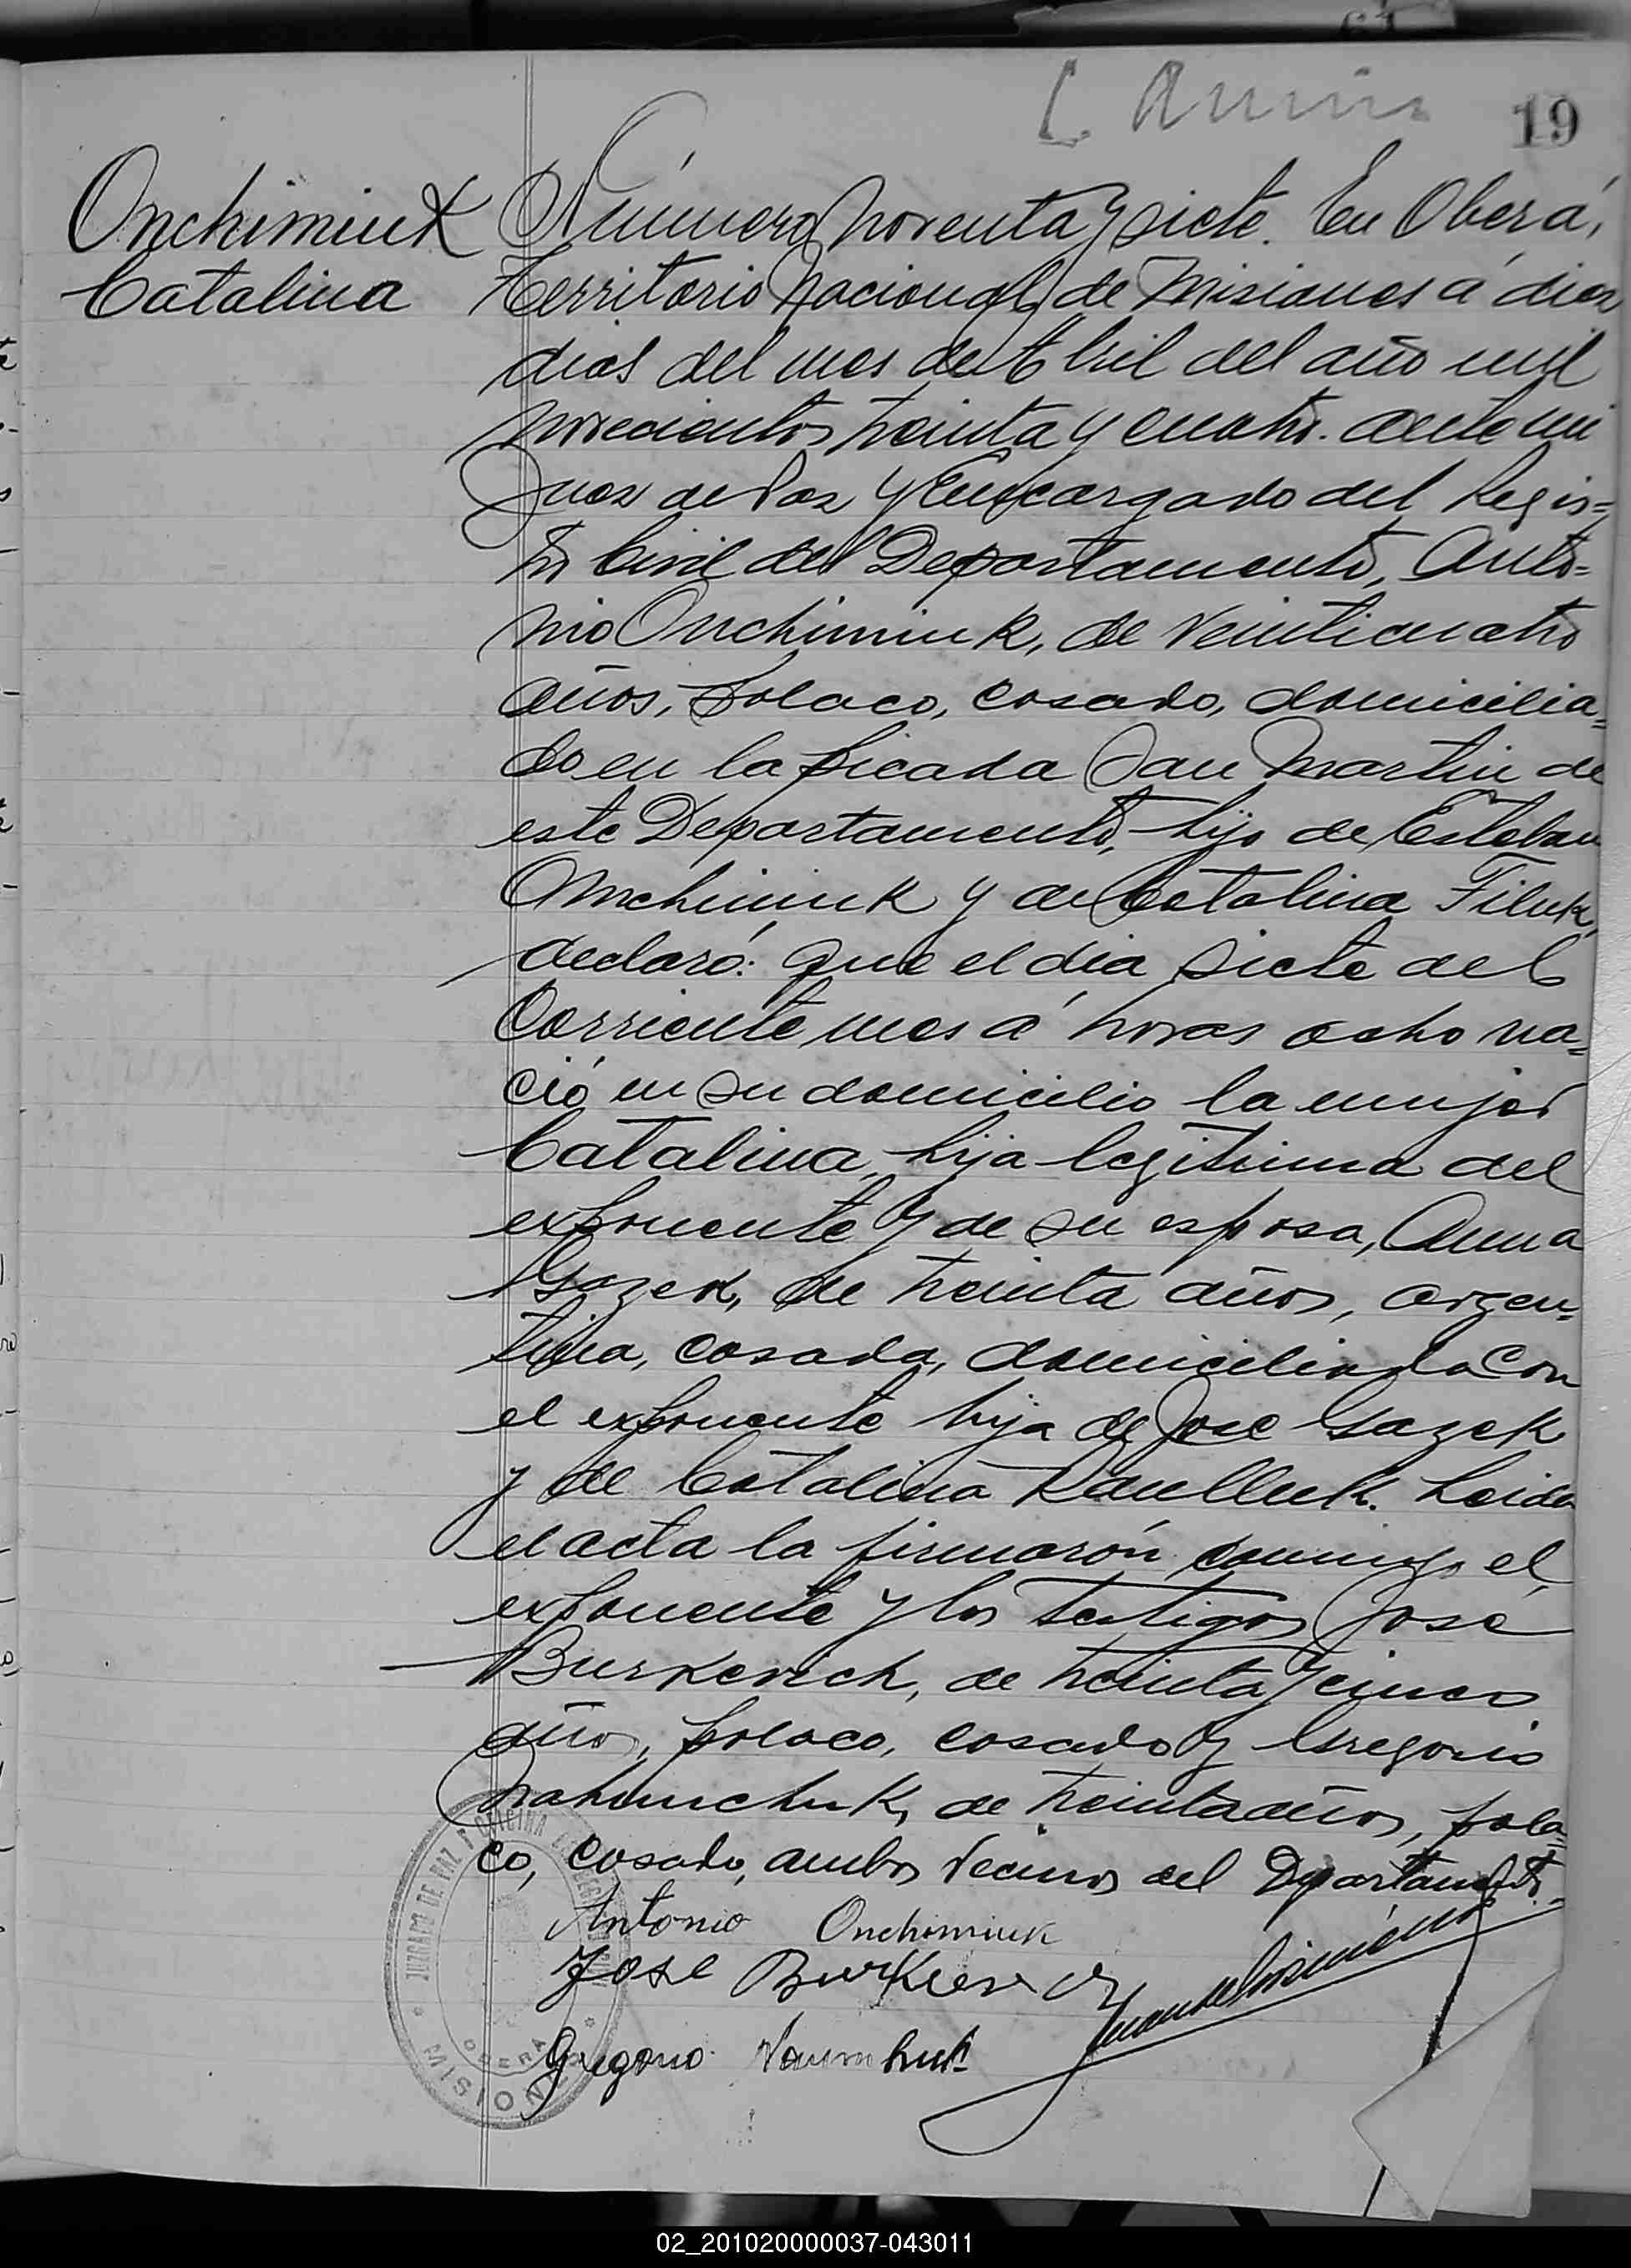 19
Onchimiuk
Catalina
Número noventa y siete. En Oberá,
Territorio Nacional de Misiones á diez
dias del mes de Abril del año mil
novecientos treinta y cuatro. ante mi
Juez de Paz y Encargado del Regis=
tro Civil del Departamento, Anto=
nio Onchimiuk, de veinticuatro
años, polaco, casado, domicilia=
do en la picada San Martin de
este Departamento, hijo de Esteban
Onchimiuk y de Catalina Filuk,
declaró: que el dia siete del
corriente mes á horas ocho na=
ció en su domicilio la mujer
Catalina, hija legitima del
exponente y de su esposa, Anna
Gazek, de treinta años, argen=
tina, casada, domiciliada con
el exponente hija de José Gazek
y de Catalina. Leida
el acta la firmarón conmigo el
exponente y los testigos José
Burkevich, de treinta y cinco
años, polaco, casado y Gregorio
de treinta años, pola=
co, casado, ambos vecinos del Departamento.=
Antonio Onchimiuk
Jose
Gregorio
JUZGADO DE PAZ Y OFICINA
OBERA
MISIONES
02_201020000037-043011